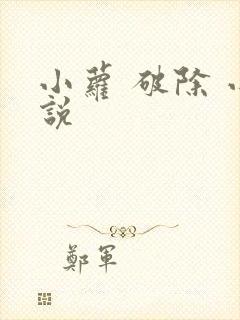 小蘿 破除
說
鄭軍